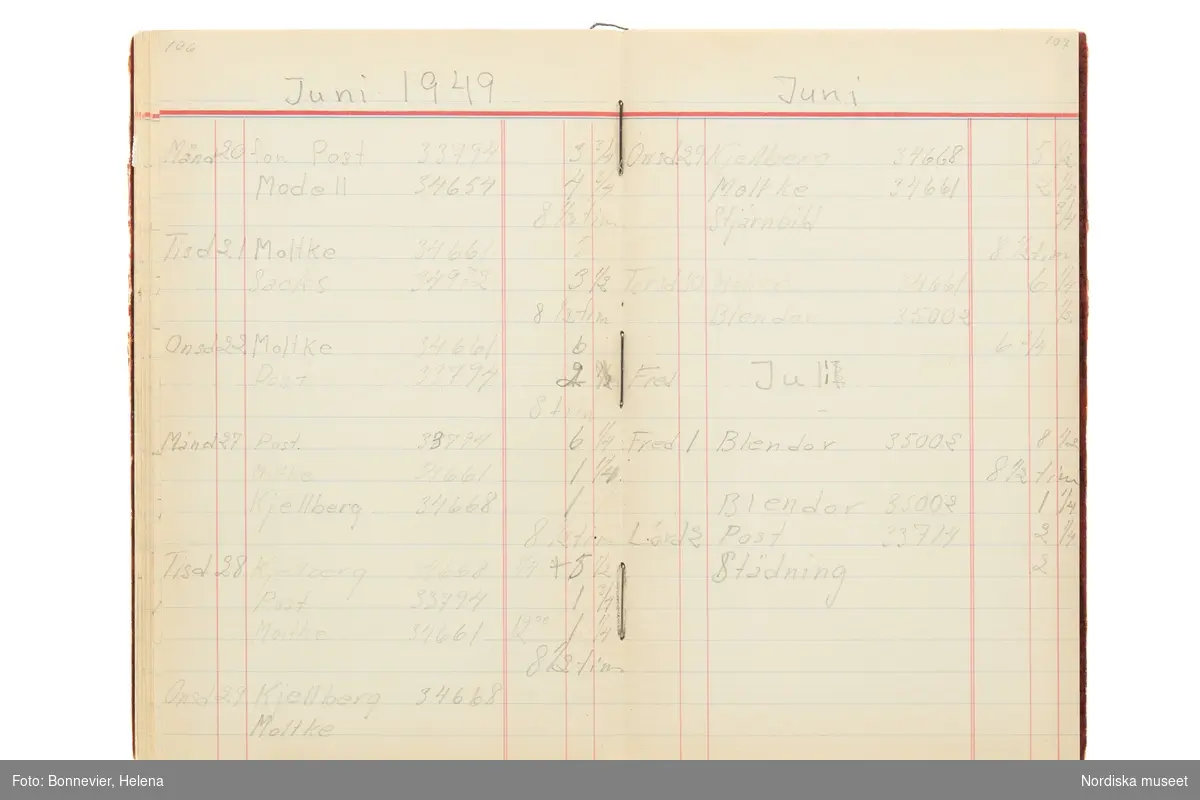 106
Juni 1949
Månd 20 Von Post 33794 3 3/4
Modell 34654 4 3/4
8 1/2 tim
Tisd 21 Moltke 34661 5
Sacks 3 1/2
8 1/2 tim
Onsd 22 Moltke 34661 6
Post 33794 2
8 tim
Månd 27 Post 33794 6 1/4
34661 1 1/4
Kjellberg 34668 1
8 1/2 tim
Tisd 28 Kjellberg 34668 + 5 1/2
Post 33794 1 3/4
Moltke 34661 12 00 1 1/4
8 1/2 tim
Onsd 29 Kjellberg 34668
Moltke
107
Juni
Onsd 29 Kjellberg 34668 5 1/2
Moltke 34661 2 1/4
Stjärnbild 3/4
8 1/2 tim
Torsd 30 Moltke 34661 6 1/4
Blendor 35002 1/2
6 3/4
Fred Juli
Fred 1 Blendor 35002 8 1/2
8 1/2 tim
Blendor 35002 1 1/4
Lörd 2 Post 2 1/4
Städning 2
Foto: Bonnevier, Helena
Nordiska museet